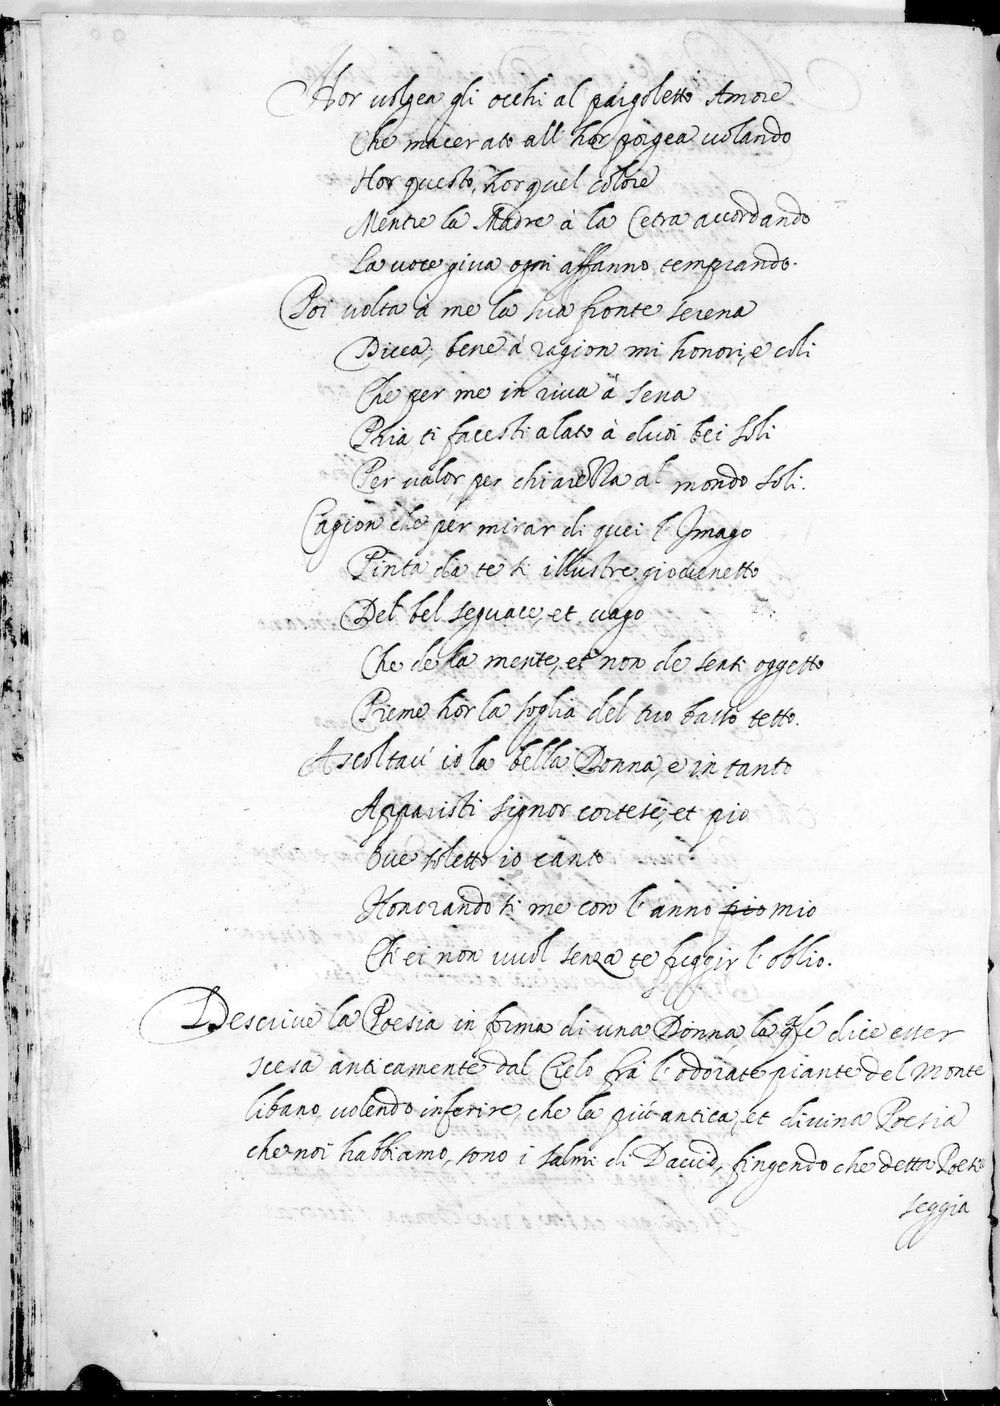 Hor volgea gli occhi al pargoletto Amore
Che macerato all'hor porgea volando
Hor questo, hor quel colore
Mentre la Madre à la Cetra accordando
La voce giva ogni affanno temprando.
Poi volta à me la sua fronte serena
Dicea; bene à ragion mi honori, e coli
Che per me in riva à Sena
Pria ti facesti alato à duoi bei soli
Per valor, per chiarezza al mondo soli.
Cagion che per mirar di quei l'Imago
Pinta da te sì illustre giovenetto
Del bel seguace, et vago
Che de la mente, et non de senti oggetto
Preme hor la soglia del tuo basso tetto.
Ascoltav' io la bella Donna, e in tanto
Apparisti signor cortese, et pio
Ove soletto io canto
Honorando ti me con l'anno pio mio
Ch'ei non vuol senza te fuggir l'oblio.
Descrive la Poesia in forma di una Donna, la qle dice esser
scesa anticamente dal Cielo frà l'odorate piante del Monte
libano, volendo inferire, che la più antica, et divina Poesia
che noi habbiamo, sono i salmi di David, fingendo che detta Poesia
seggia